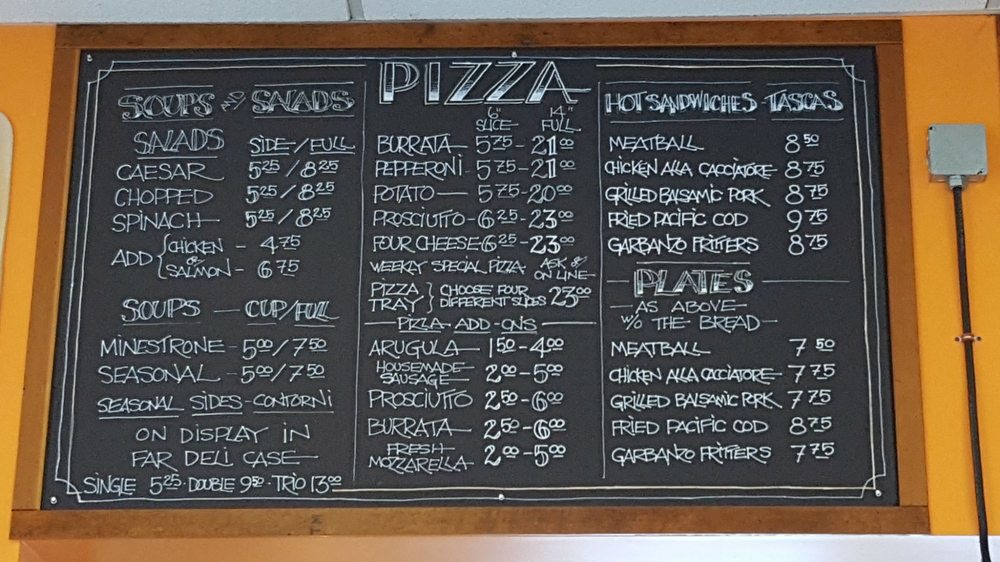 SOUPS & SALADS
SALADS SIDE/FULL
CAESAR 5.25/8.25
CHOPPED 5.25/8.25
SPINACH 5.25/8.25
ADD { CHICKEN - 4.75
OR
SALMON - 6.75
SOUPS - CUP/FULL
MINESTRONE - 5.00/7.50
SEASONAL - 5.00/7.50
SEASONAL SIDES-CONTORNI
ON DISPLAY IN
FAR DELI CASE
SINGLE 5.25 · DOUBLE 9.50 · TRIO 13.00
PIZZA
6" SLICE 14" FULL
BURRATA 5.75 - 21.00
PEPPERONI 5.75 - 21.00
POTATO 5.75 - 20.00
PROSCIUTTO - 6.25 - 23.00
FOUR CHEESE 6.25 - 23.00
WEEKLY SPECIAL PIZZA ASK & ON LINE
PIZZA TRAY } CHOOSE FOUR DIFFERENT SLICES 23.00
PIZZA ADD-ONS
ARUGULA 1.50 - 4.00
HOUSEMADE SAUSAGE 2.00 - 5.00
PROSCIUTTO 2.50 - 6.00
BURRATA 2.50 - 6.00
FRESH MOZZARELLA 2.00 - 5.00
HOT SANDWICHES-TASCAS
MEATBALL 8.50
CHICKEN ALLA CACCIATORE 8.75
GRILLED BALSAMIC PORK 8.75
FRIED PACIFIC COD 9.75
GARBANZO FRITTERS 8.75
PLATES
AS ABOVE
W/O THE BREAD
MEATBALL 7.50
CHICKEN ALLA CACCIATORE 7.75
GRILLED BALSAMIC PORK 7.75
FRIED PACIFIC COD 8.75
GARBANZO FRITTERS 7.75